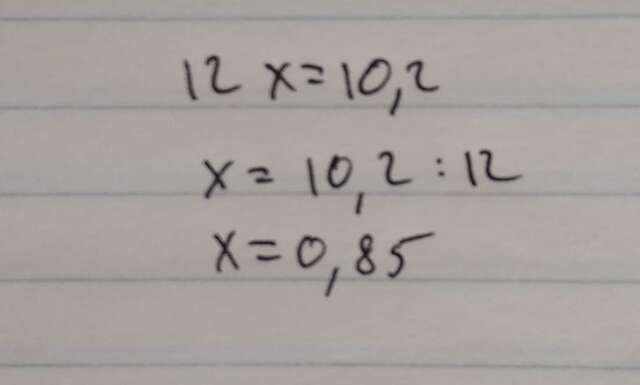 12 x=10,2
x= 10,2:12
x=0,85